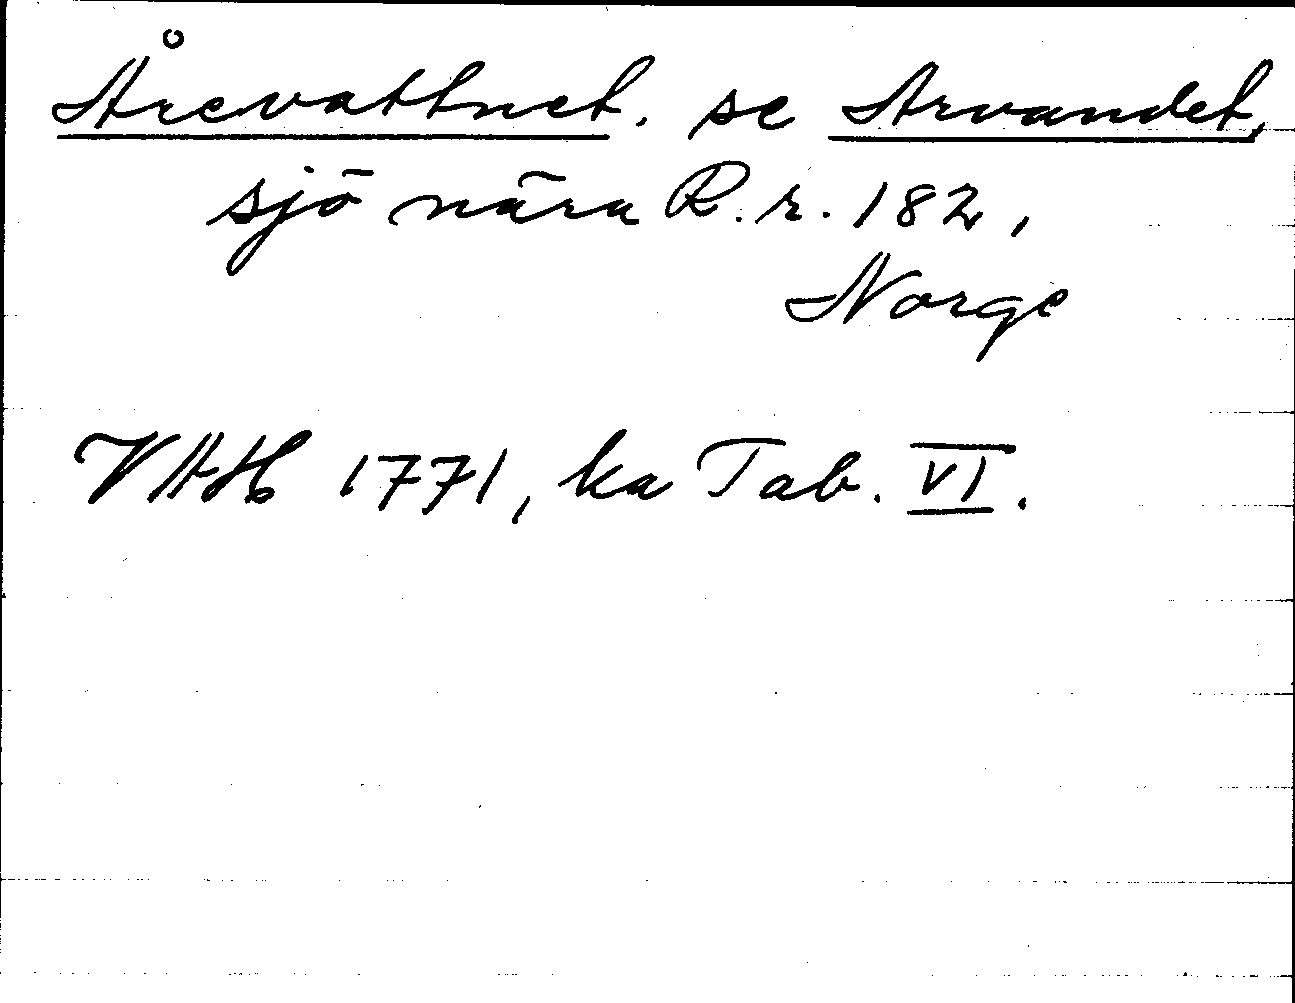 Årevattnet. se Arvandet,
sjö nära R. r. 182,
Norge
VAH 1771, ka Tab. VI.